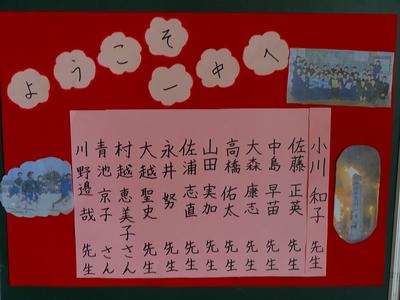 ようこそ
一中へ
小川 和子 先生
佐藤 正英 先生
中島 早苗 先生
大森 康志 先生
高橋 佑太 先生
山田 実加 先生
佐浦 志直 先生
永井 努 先生
大越 聖史 先生
村越 恵美子 さん
青池 京子 さん
川野邉 哉 先生